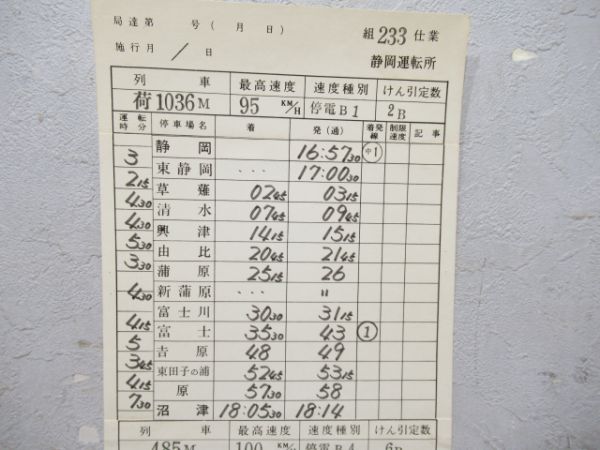 局達第 号( 月 日)
組 233 仕業
施行月 / 日
静岡運転所
列車 最高速度 速度種別 けん引定数
荷1036M 95 KM/H 停電B1 2B
運転時分 停車場名 着 発(通) 着発線 制限速度 記事
静岡 16:57 30 中1
3
東静岡 ・・・ 17:00 30
2 15
草薙 02 45 03 15
4 30
清水 07 45 09 45
4 30
興津 14 15 15 15
5 30
由比 20 45 21 45
3 30
蒲原 25 15 26
新蒲原 ・・・ 〃
4 30
富士川 30 30 31 15
4 15
富士 35 30 43 1
5
吉原 48 49
3 45
東田子の浦 52 45 53 15
4 15
原 57 30 58
7 30
沼津 18:05 30 18:14
列車 最高速度 速度種別 けん引定数
485M 100 KM/ 停電B4 6B